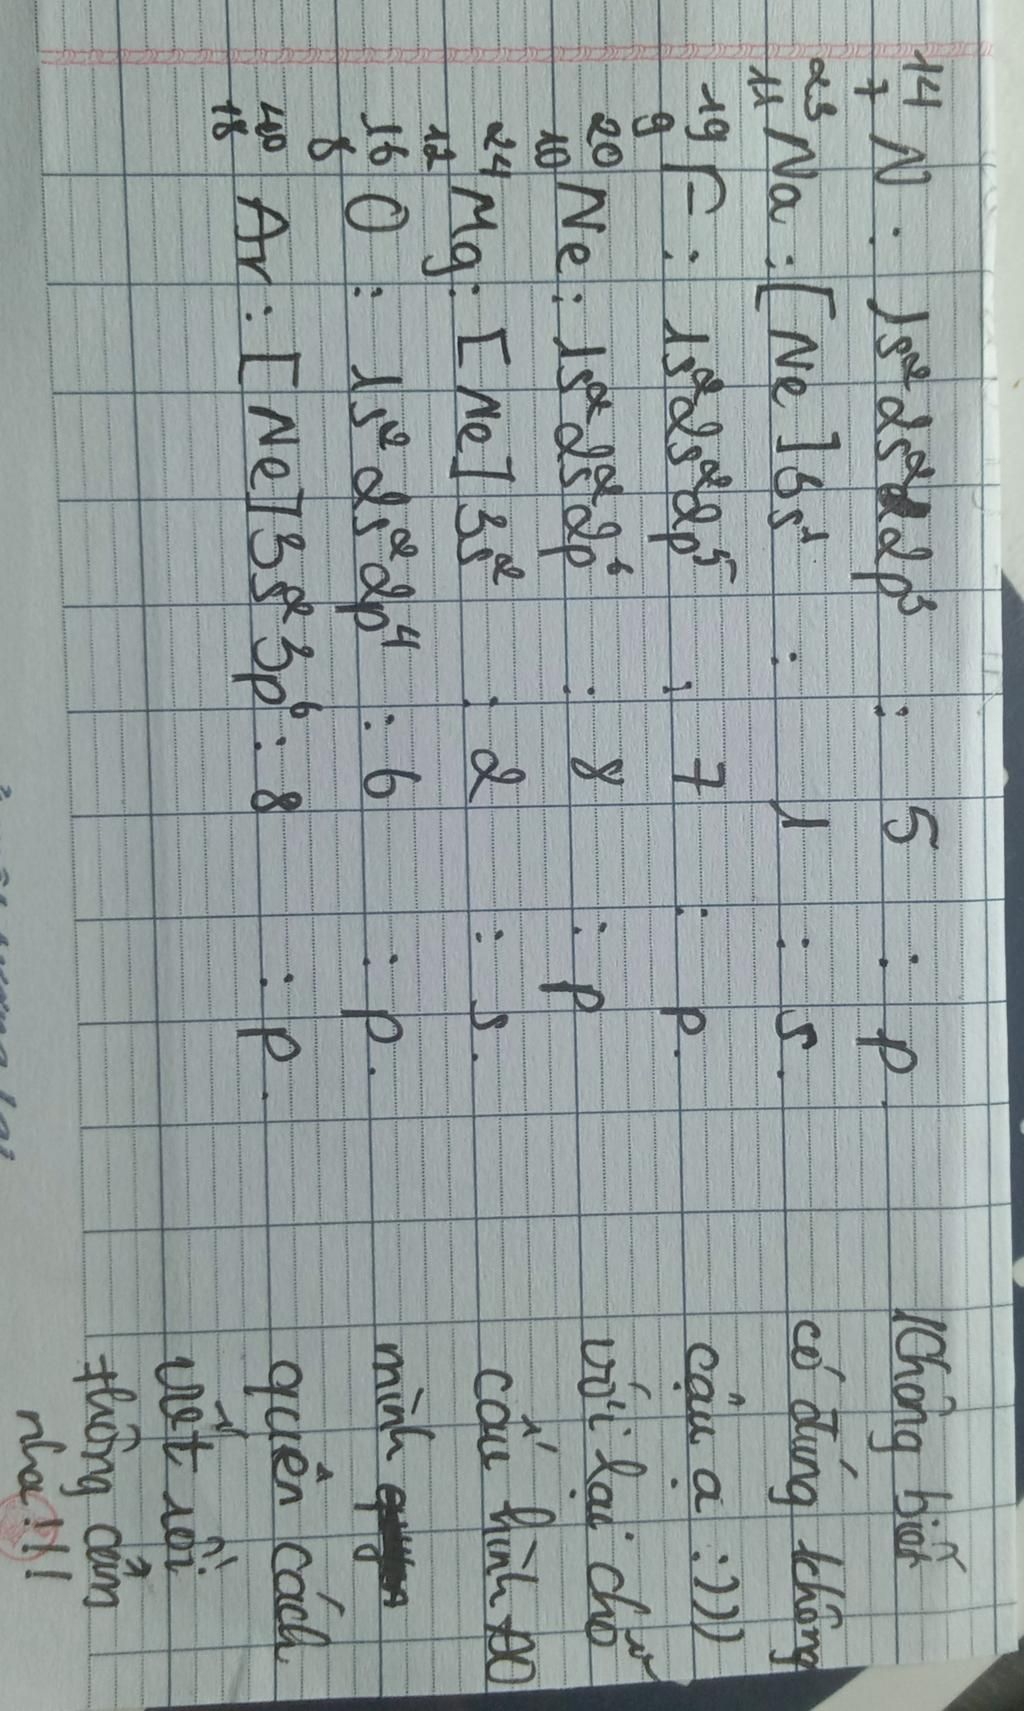 ¹⁴₇N : 1s²2s²2p³ : 5 : p.
²³₁₁Na : [Ne]3s¹ : 1 : s.
¹⁹₉F : 1s²2s²2p⁵ : 7 : p.
²⁰₁₀Ne : 1s²2s²2p⁶ : 8 : p
²⁴₁₂Mg : [Ne]3s² : 2 : s.
¹⁶₈O : 1s²2s²2p⁴ : 6 : p.
⁴⁰₁₈Ar : [Ne]3s²3p⁶ : 8 : p.
Không biết
có đúng không
cậu ạ :)))
với lại chỗ
cấu hình AO
mình
quên cách
viết rồi
thông cảm
nha !!!